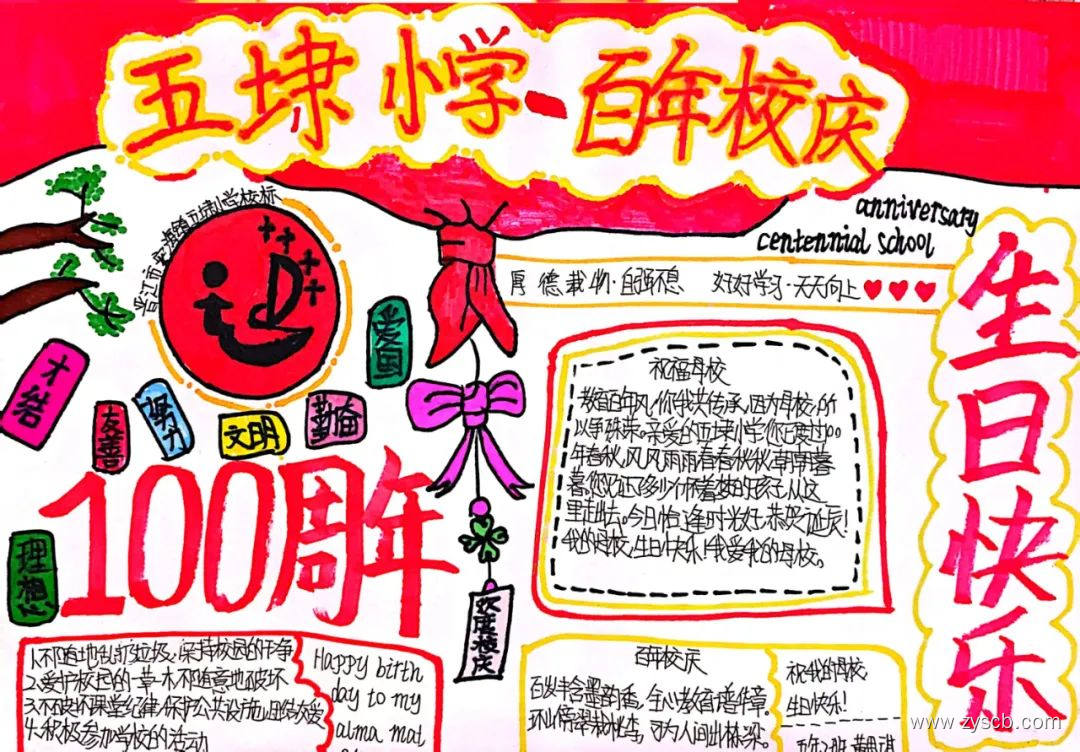 五埭小学
百年校庆
anniversary
centennial school
晋江市安海镇五埭小学校标
厚德载物·自强不息 好好学习·天天向上
生日快乐
爱国
才结
友善
努力
文明
勤奋
理想
100周年
欢度校庆
祝福母校
教育百年风,你我共传承,因为母校,所
以争 来。亲爱的五埭小学你正度过100
年春秋,风风雨雨看春秋秋,朝朝暮
暮,您见证了多少个怀着梦的孩子,从这
里走出去。今日恰逢时光好,恭贺 !
我的母校,生日快乐!我爱我的母校。
1.不随地乱扔垃圾,保持校园的干净
2.爱护校园的一草一木,不随意地破坏
3.不破坏课堂纪律,保护公共设施,团结友爱
4.积极参加学校的活动
Happy birth
day to my
alma mat
百年校庆
百岁丰含墨韵香,全心教育谱华章。
环山傍翠栽桃李,又为人间出栋梁。
祝我的母校
生日快乐!
www.zyscb.com